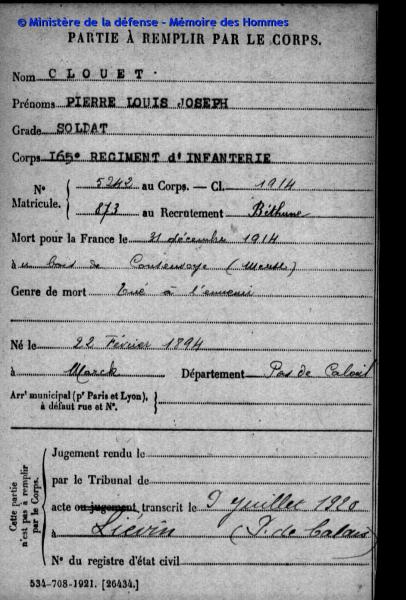 © Ministère de la défense - Mémoire des Hommes
PARTIE À REMPLIR PAR LE CORPS.
Nom CLOUET.
Prénoms PIERRE LOUIS JOSEPH
Grade SOLDAT
Corps 165e REGIMENT d'INFANTERIE
N° 5242 au Corps. — Cl. 1914
Matricule. 873 au Recrutement Béthune
Mort pour la France le 21 décembre 1914
à bois de (Meuse)
Genre de mort Tué à l'ennemi
Né le 22 Février 1894
à Marck Département Pas de Calais
Arrt municipal (pr Paris et Lyon),
à défaut rue et N°.
Cette partie
n'est pas à remplir
par le Corps.
Jugement rendu le
par le Tribunal de
acte ou jugement transcrit le 9 juillet 1920
à Liévin (P. de Calais)
N° du registre d'état civil
534-708-1921. [26434.]